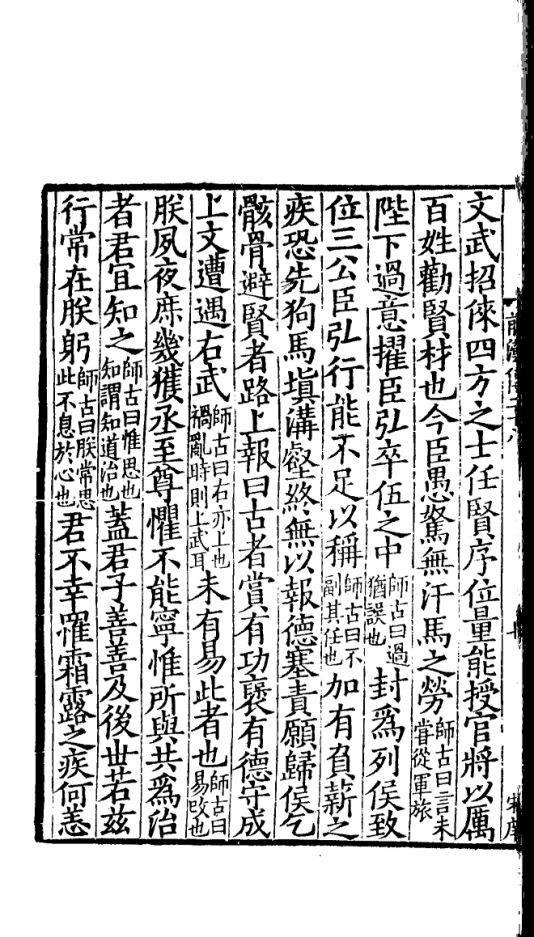 文武招倈四方之士任賢序位量能授官將以厲
百姓勸賢材也今臣愚駑無汗馬之勞師古曰言未嘗從軍旅
陛下過意擢臣弘卒伍之中師古曰過猶誤也封爲列侯致
位三公臣弘行能不足以稱師古曰不副其任也加有負薪之
疾恐先狗馬塡溝壑終無以報德塞責願歸侯乞
骸骨避賢者路上報曰古者賞有功襃有德守成
上文遭遇右武師古曰右亦上也禍亂時則上武耳未有易此者也師古曰易改也
朕夙夜庶幾獲承至尊懼不能寧惟所與共爲治
者君宜知之師古曰惟思也知謂知道治也蓋君子善善及後世若兹
行常在朕躬師古曰朕常思此不息於心也君不幸罹霜露之疾何恙